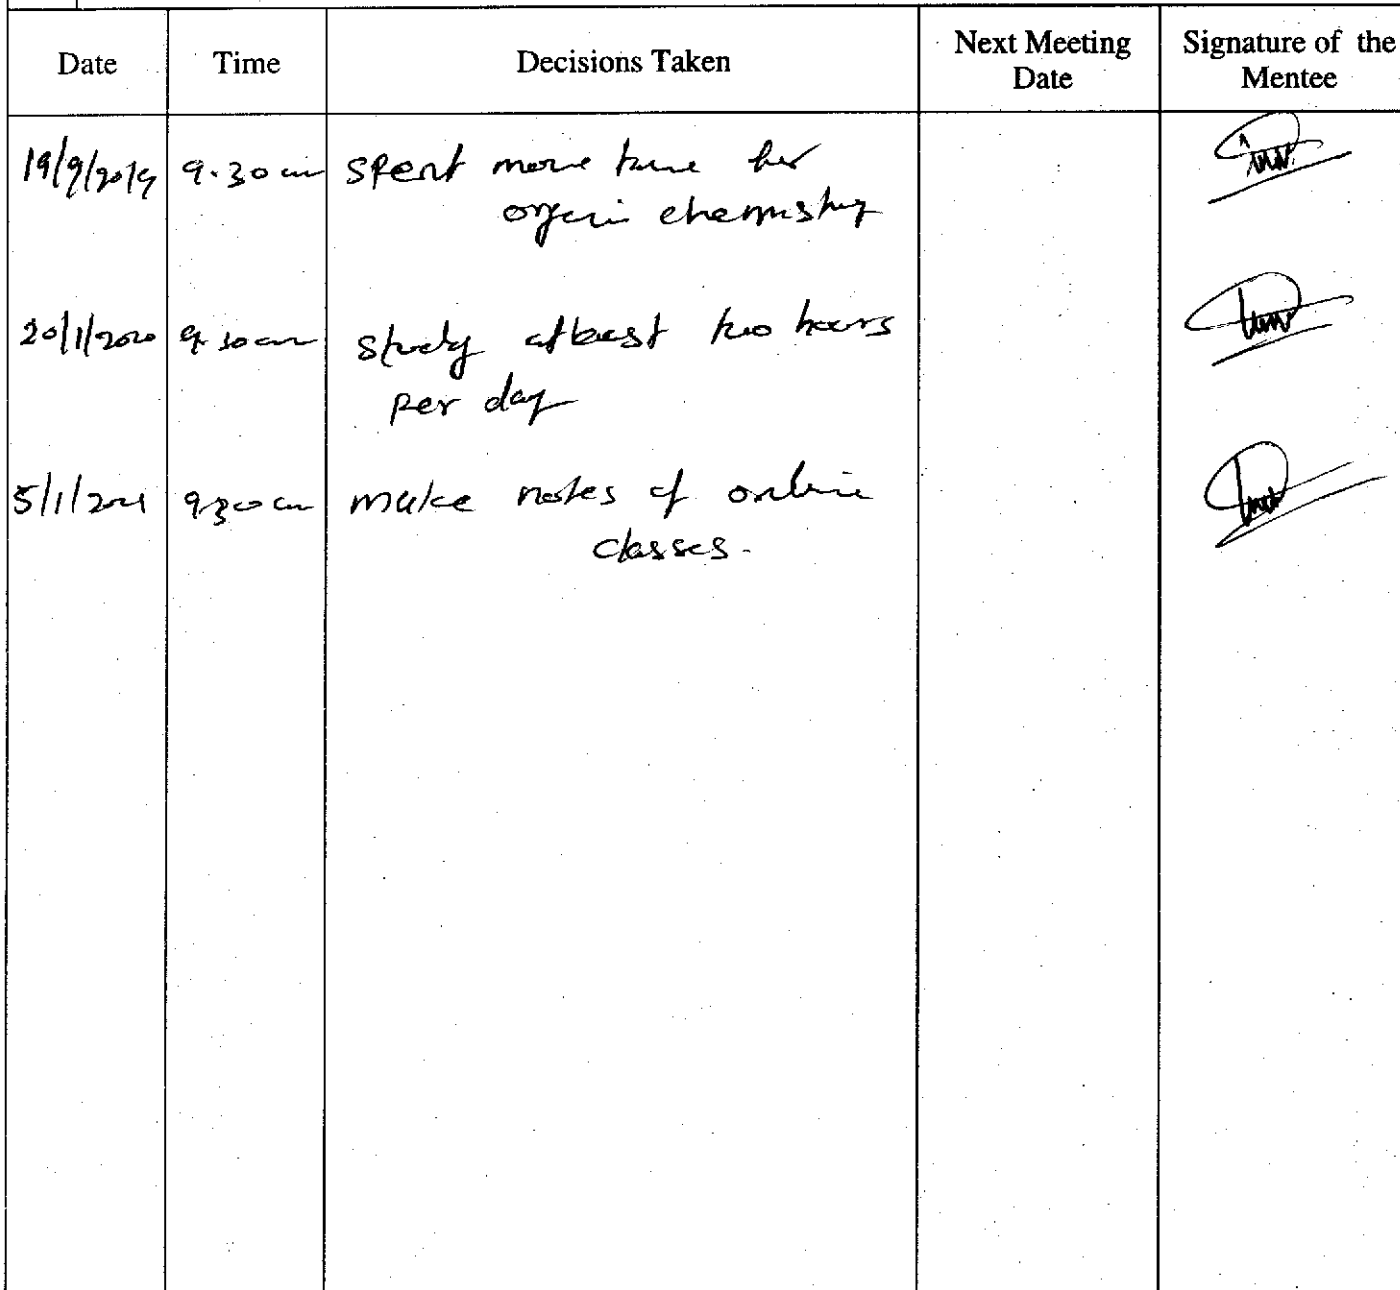 Date Time Decisions Taken Next Meeting Date Signature of the Mentee
19/9/2019 9.30 am spent more time for
organic chemistry
20/1/2020 9.30 am study atleast two hours
per day
5/1/2021 9.30 am make notes of online
classes.